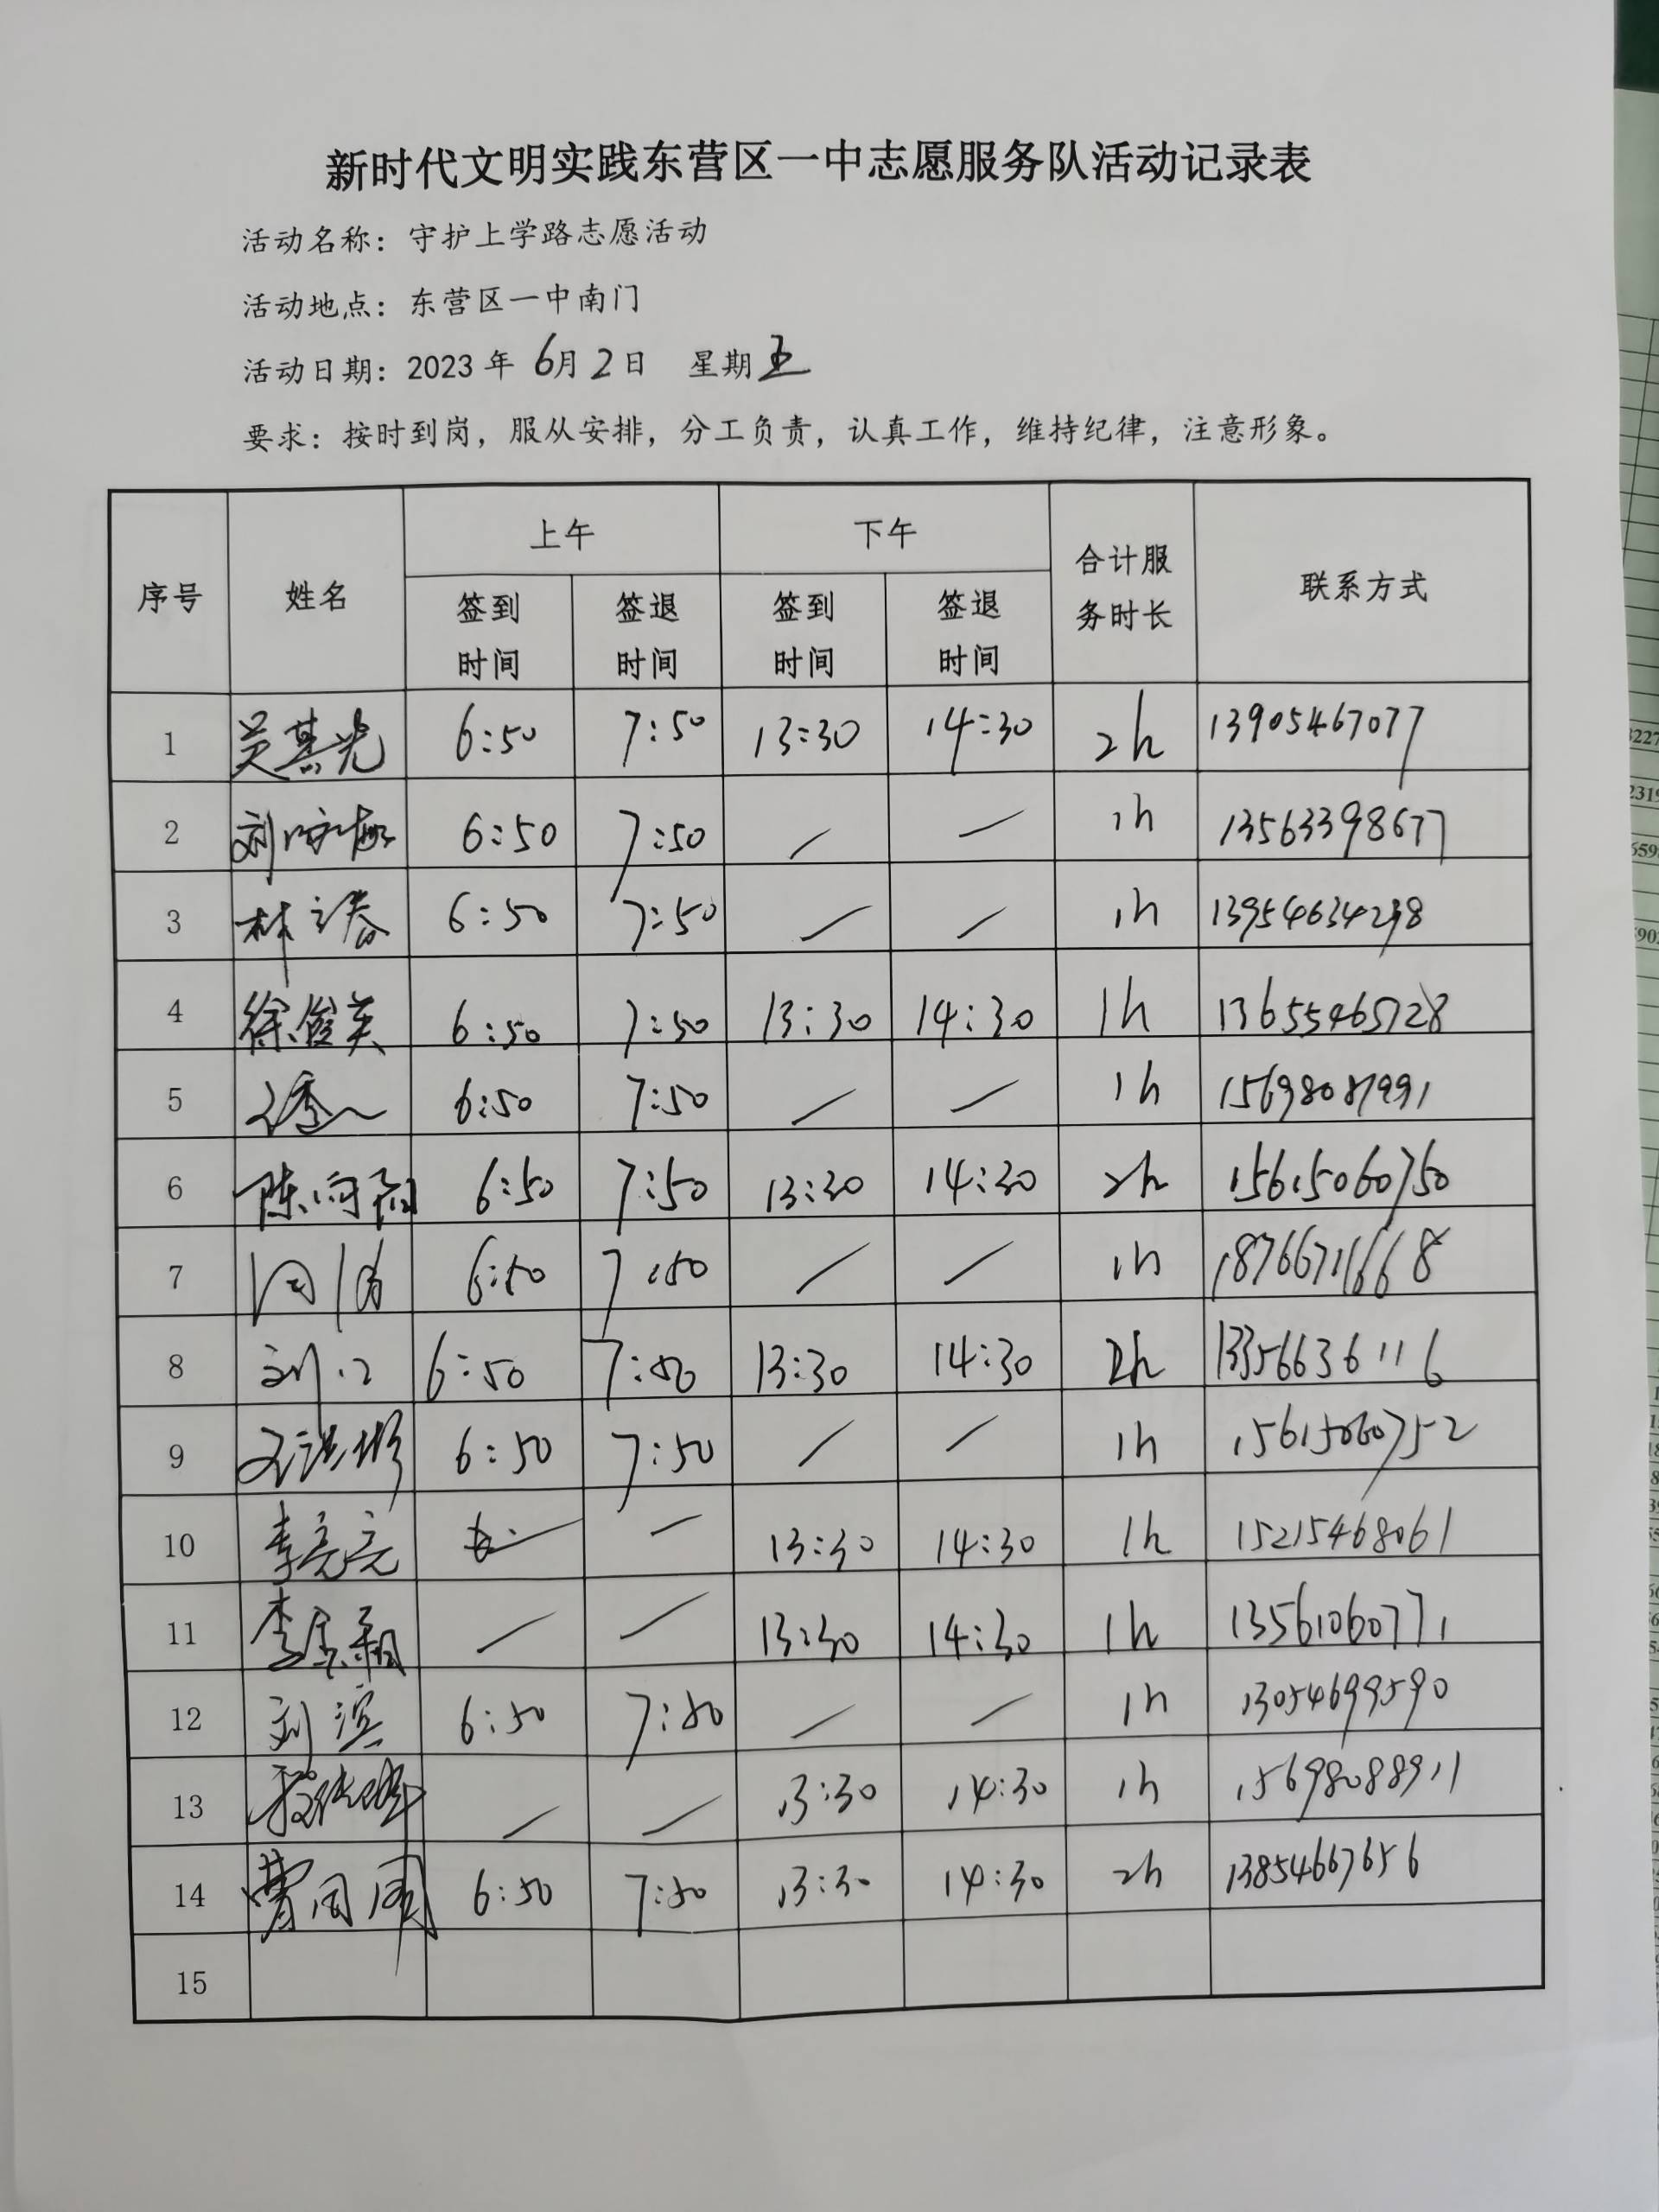 新时代文明实践东营区一中志愿服务队活动记录表
活动名称：守护上学路志愿活动
活动地点：东营区一中南门
活动日期：2023 年 6月 2日 星期五
要求：按时到岗，服从安排，分工负责，认真工作，维持纪律，注意形象。
序号 姓名 上午 下午 合计服务时长 联系方式
签到时间 签退时间 签到时间 签退时间
1 吴其光 6:50 7:50 13:30 14:30 2h 13905467077
2 6:50 7:50 / / 1h 13563398677
3 6:50 7:50 / / 1h
4 徐俊英 6:50 7:50 13:30 14:30 1h 13655465728
5 6:50 7:50 / / 1h
6 6:50 7:50 13:30 14:30 2h 15615060750
7 6:50 7:50 / / 1h 18766716668
8 6:50 7:50 13:30 14:30 2h 13356636116
9 6:50 7:50 / / 1h 15615060752
10 李亮亮 — 13:30 14:30 1h 15215468061
11 / / 13:30 14:30 1h 13561060771
12 刘滨 6:50 7:50 / / 1h 13054699590
13 / / 13:30 14:30 1h 15698088911
14 6:50 7:50 13:30 14:30 2h 13854667656
15